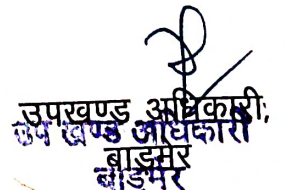 उपखण्ड अधिकारी,
उप खण्ड अधिकारी
बाड़मेर
बाड़मेर